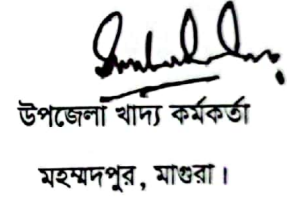 উপজেলা খাদ্য কর্মকর্তা
মহম্মদপুর, মাগুরা।